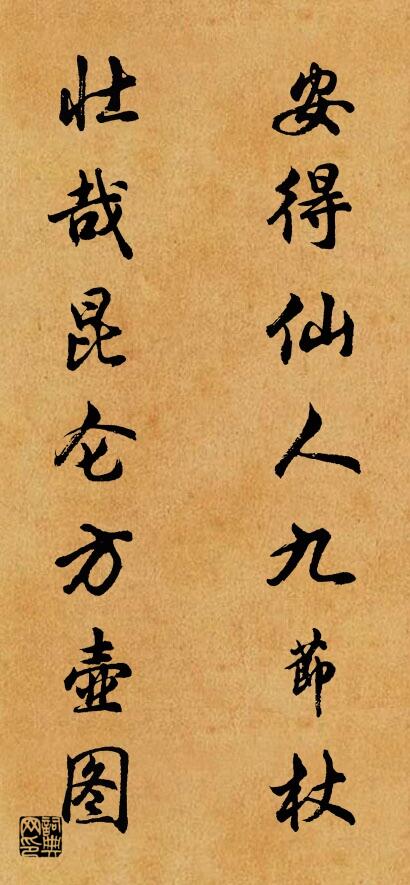 安得仙人九節杖
壮哉昆仑方壶图
詞典网印